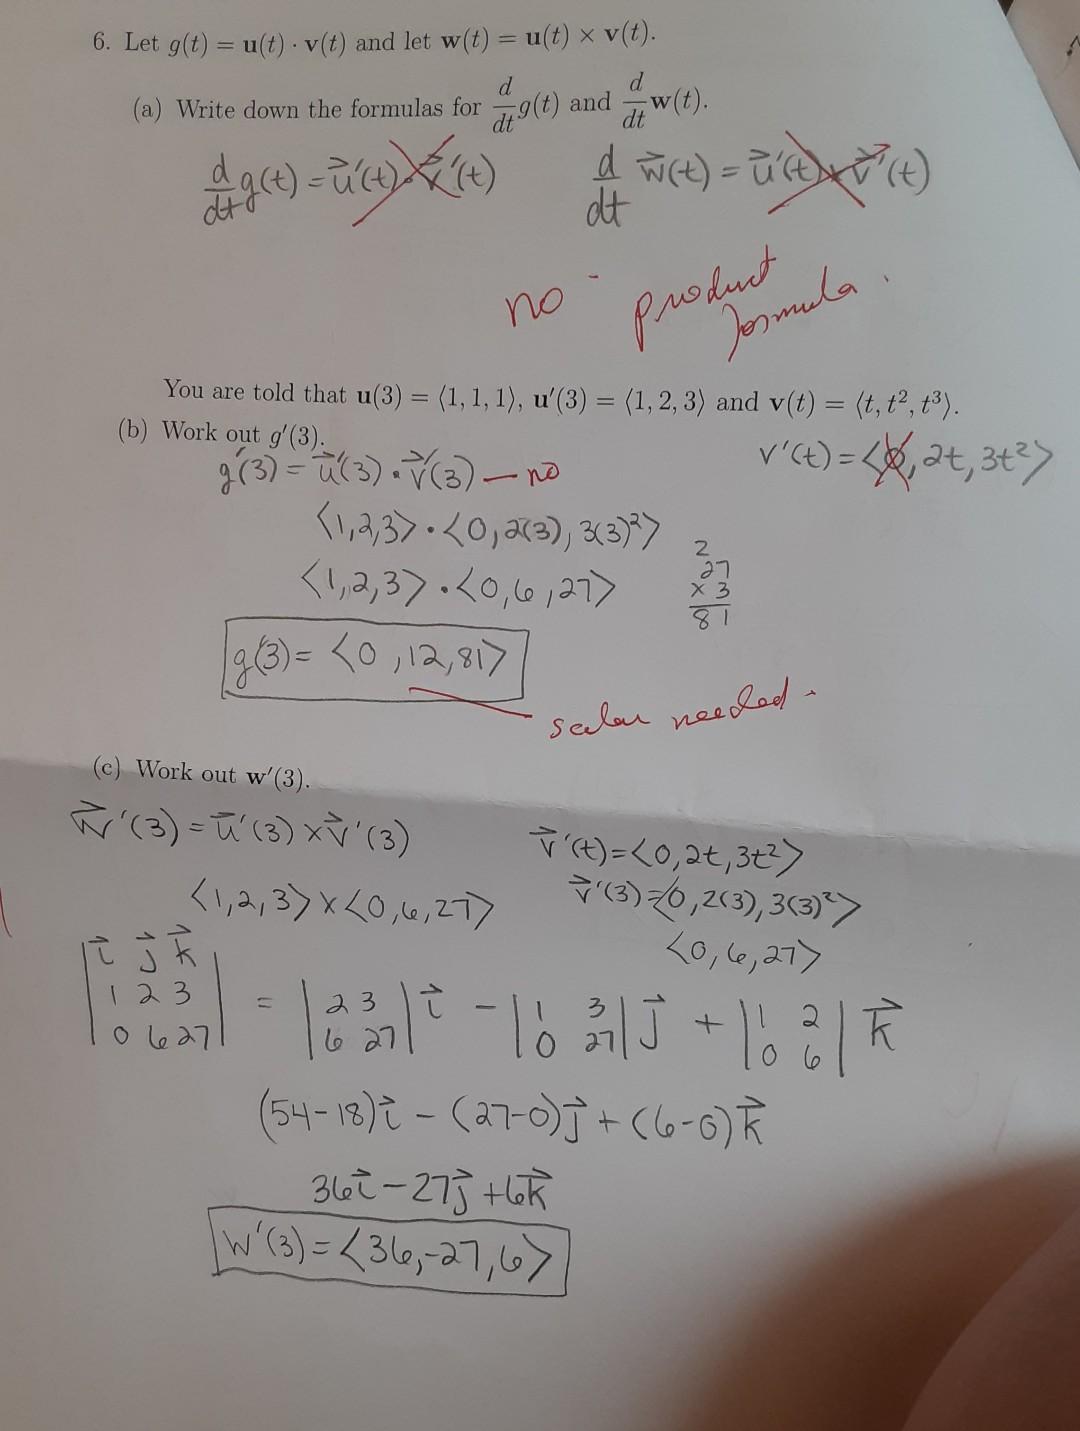 6. Let g(t) = u(t) · v(t) and let w(t) = u(t) × v(t).
(a) Write down the formulas for d/dt g(t) and d/dt w(t).
d/dt g(t) = u⃗'(t) · v⃗'(t)    d/dt w⃗(t) = u⃗'(t) × v⃗'(t)
no - product
formula.
You are told that u(3) = ⟨1, 1, 1⟩, u′(3) = ⟨1, 2, 3⟩ and v(t) = ⟨t, t², t³⟩.
(b) Work out g′(3).
v'(t) = <0, 2t, 3t²>
g'(3) = u⃗'(3) · v⃗'(3) — no
<1,2,3> · <0, 2(3), 3(3)²>
<1,2,3> · <0,6,27>
2
27
x 3
81
g'(3) = <0, 12, 81>
scalar needed.
(c) Work out w′(3).
w⃗'(3) = u⃗'(3) × v⃗'(3)
v⃗'(t) = <0, 2t, 3t²>
<1,2,3> x <0,6,27>
v⃗'(3) = <0, 2(3), 3(3)²>
<0,6,27>
|i⃗ j⃗ k⃗|
|1 2 3| = |2 3| i⃗ - |1 3| j⃗ + |1 2| k⃗
|0 6 27| |6 27| |0 27| |0 6|
(54-18)i⃗ - (27-0)j⃗ + (6-0)k⃗
36i⃗ - 27j⃗ + 6k⃗
w'(3) = <36, -27, 6>